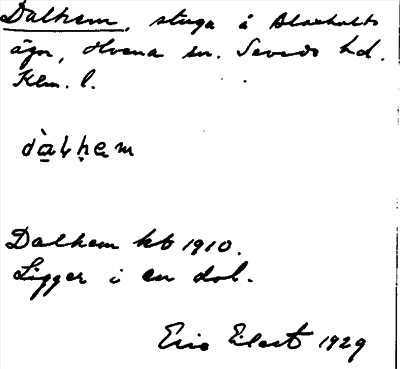 Dalhem, stuga å Blaxhults
ägor, Hvena sn. Sevede hd.
Klm. l.
dàlhem
Dalhem kb 1910.
Ligger i en dal.
Eric Eilert 1929